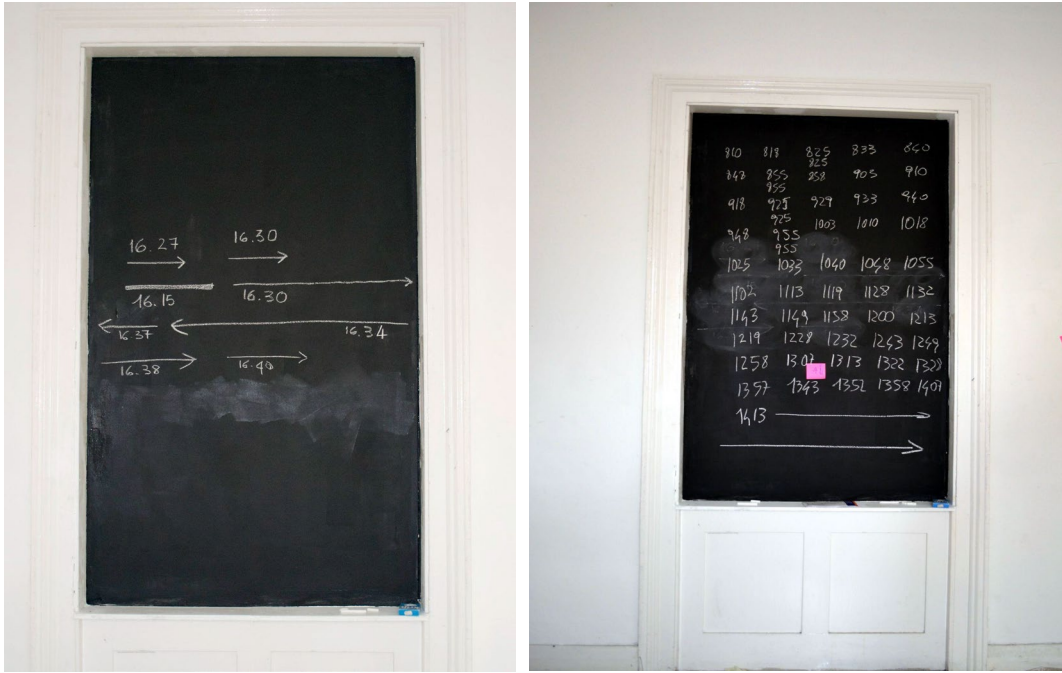 16.27 16.30
16.15 16.30
16.37 16.34
16.38 16.40
810 818 825 833 840
825
848 855 858 903 910
855
918 925 929 933 940
925 1003 1010 1018
948 955
955
1025 1033 1040 1048 1055
1102 1113 1119 1128 1132
1143 1149 1158 1200 1213
1219 1228 1232 1243 1249
1258 1307 1313 1322 1328
1357 1343 1352 1358 1407
1413